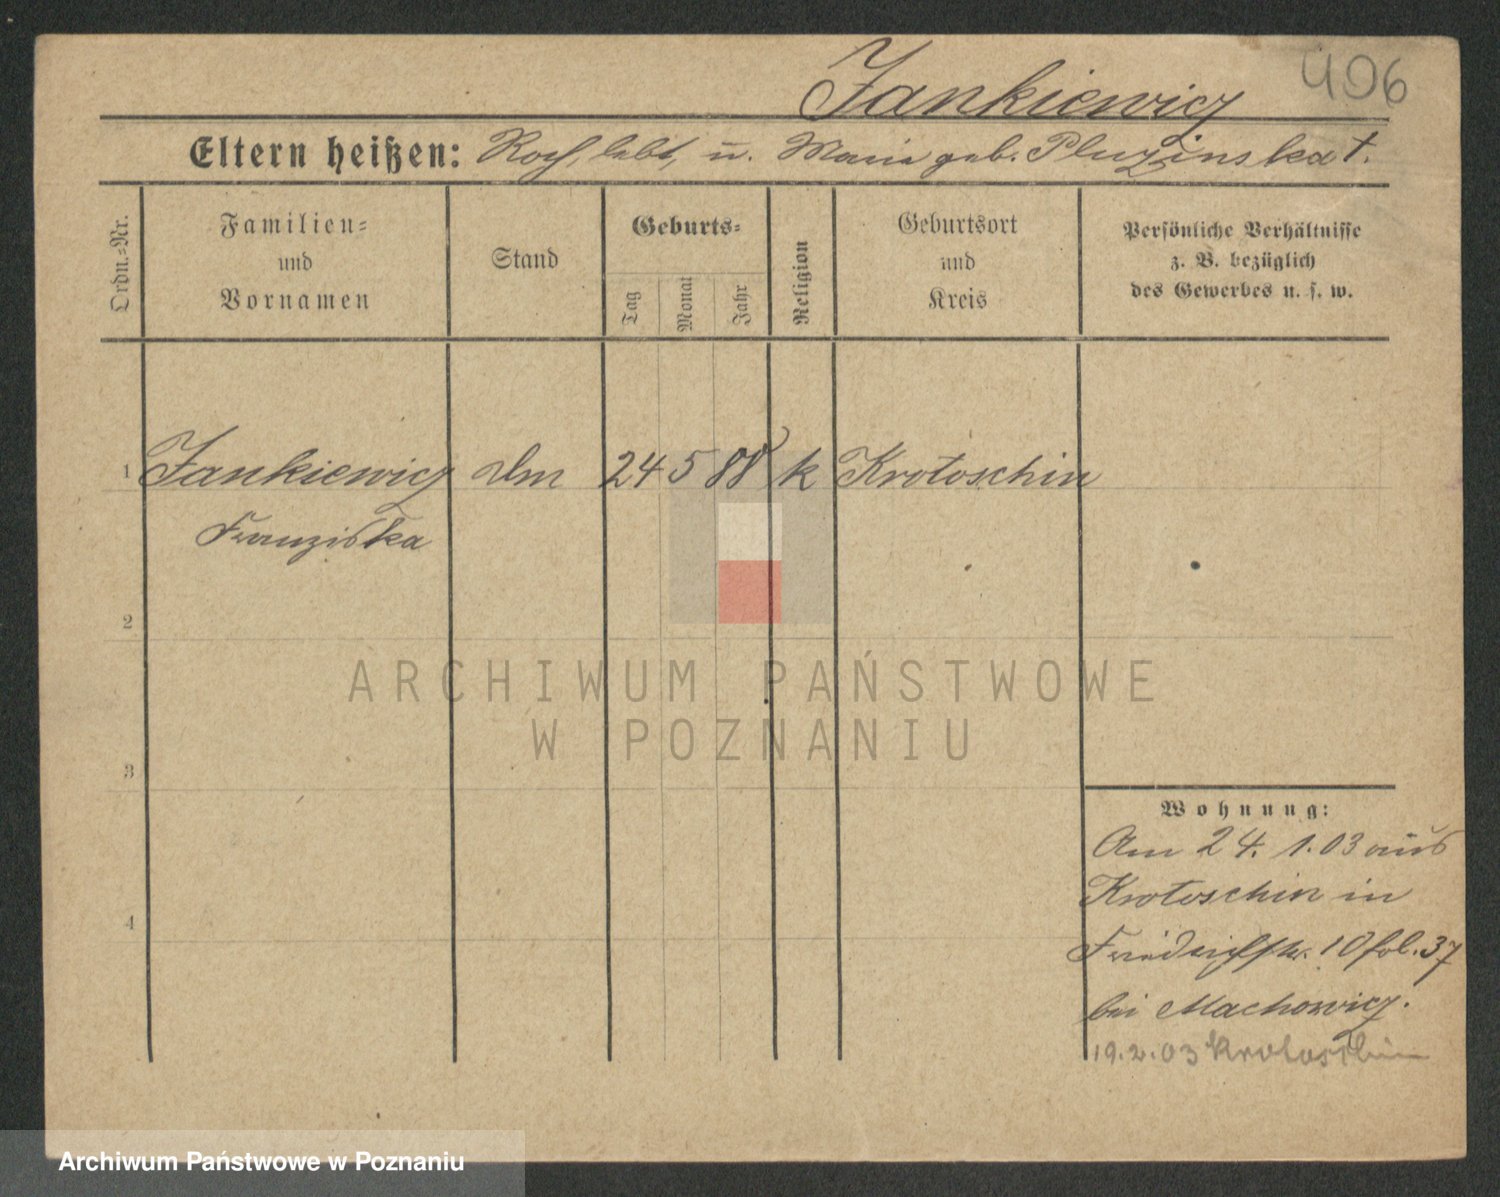 Jankiewicz
406
Eltern heißen: Roch, lebt, u. Maria geb. Pluzinska †.
Ordn.-Nr.
Familien-
und
Vornamen
Stand
Geburts-
Tag
Monat
Jahr
Religion
Geburtsort
und
Kreis
Persönliche Verhältnisse
z. B. bezüglich
des Gewerbes u. s. w.
1 Jankiewicz Dm 24 5 88 k Krotoschin
Franziska
2
ARCHIWUM PAŃSTWOWE
W POZNANIU
3
Wohnung:
Am 24. 1. 03 aus
Krotoschin in
4
Friedrichstr. 10 fol. 37
bei Machowicz.
19.2.03 Krotoschin
Archiwum Państwowe w Poznaniu